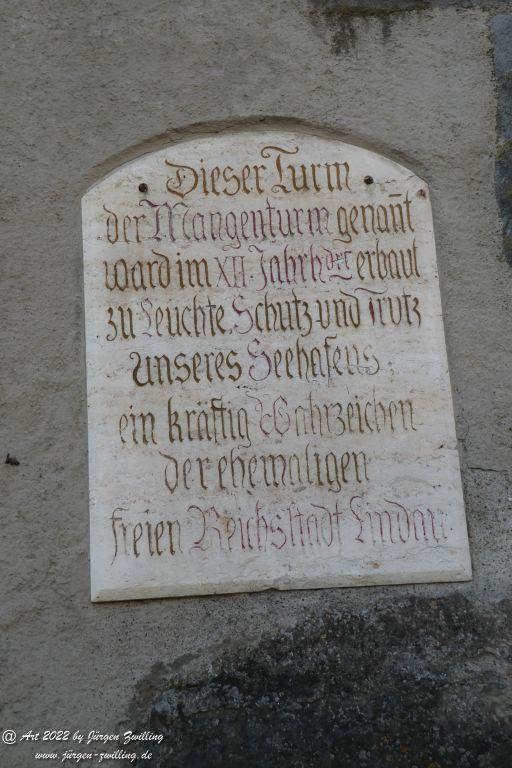 Dieser Turm
der Mangenturm genan̄t
ward im XII. Jahrhdrt. erbaut
zu Leuchte, Schutz und Trutz
unseres Seehafens,
ein kräftig Wahrzeichen
der ehemaligen
freien Reichsstadt Lindau.
@ Art 2022 by Jürgen Zwilling
www.jürgen-zwilling.de